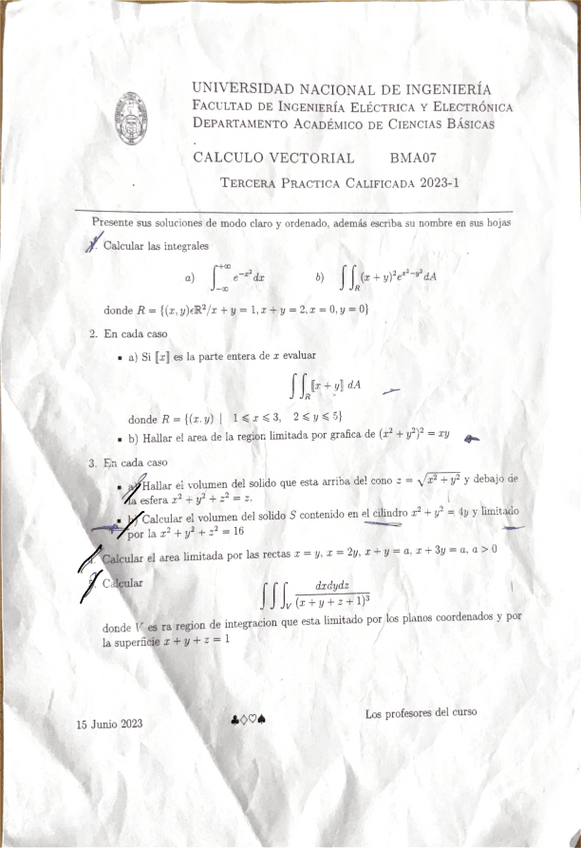 UNIVERSIDAD NACIONAL DE INGENIERÍA
FACULTAD DE INGENIERÍA ELÉCTRICA Y ELECTRÓNICA
DEPARTAMENTO ACADÉMICO DE CIENCIAS BÁSICAS
CALCULO VECTORIAL BMA07
TERCERA PRACTICA CALIFICADA 2023-1
Presente sus soluciones de modo claro y ordenado, además escriba su nombre en sus hojas
Calcular las integrales
a) ∫_{-∞}^{+∞} e^{-x²} dx b) ∬_R (x + y)² e^{x²-y²} dA
donde R = {(x, y)ϵℝ²/x + y = 1, x + y = 2, x = 0, y = 0}
2. En cada caso
▪ a) Si ⟦x⟧ es la parte entera de x evaluar
∬_R ⟦x + y⟧ dA
donde R = {(x.y) | 1 ⩽ x ⩽ 3, 2 ⩽ y ⩽ 5}
▪ b) Hallar el area de la region limitada por grafica de (x² + y²)² = xy
3. En cada caso
▪ a) Hallar el volumen del solido que esta arriba del cono z = √(x² + y²) y debajo de
la esfera x² + y² + z² = z.
▪ b) Calcular el volumen del solido S contenido en el cilindro x² + y² = 4y y limitado
por la x² + y² + z² = 16
Calcular el area limitada por las rectas x = y, x = 2y, x + y = a, x + 3y = a, a > 0
Calcular
∭_V dxdydz / (x + y + z + 1)³
donde V es ra region de integracion que esta limitado por los planos coordenados y por
la superficie x + y + z = 1
15 Junio 2023 ♣♢♡♠ Los profesores del curso